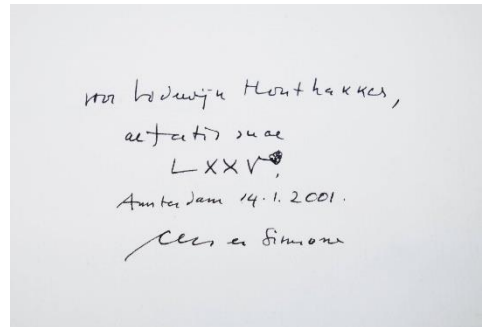 voor Lodewijn Houthakker,
aetatis suae
LXXV.
Amsterdam 14.1.2001.
Cees en Simone